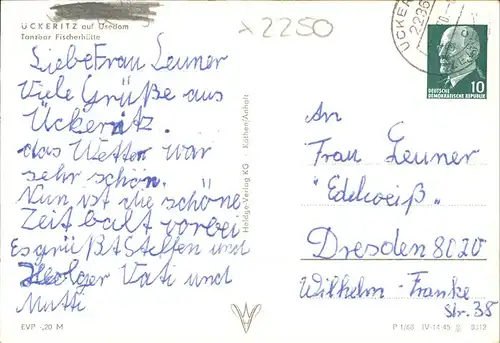 λ 2250
ÜCKERITZ auf Usedom
Tanzbar Fischerhütte
Liebe Frau Leuner
Viele Grüße aus
Ückeritz.
das Wetter war
sehr schön.
Nun ist die schöne
Zeit balt vorbei
Es grüßt Steffen und
Holger Vati und
Mutti
EVP -,20 M
Heldge-Verlag KG Köthen/Anhalt
ÜCKER
DEUTSCHE 10
DEMOKRATISCHE REPUBLIK
An
Frau Leuner
"Edelweiß"
Dresden 8020
Wilhelm-Franke
Str. 38
P 1/68 IV-14-45